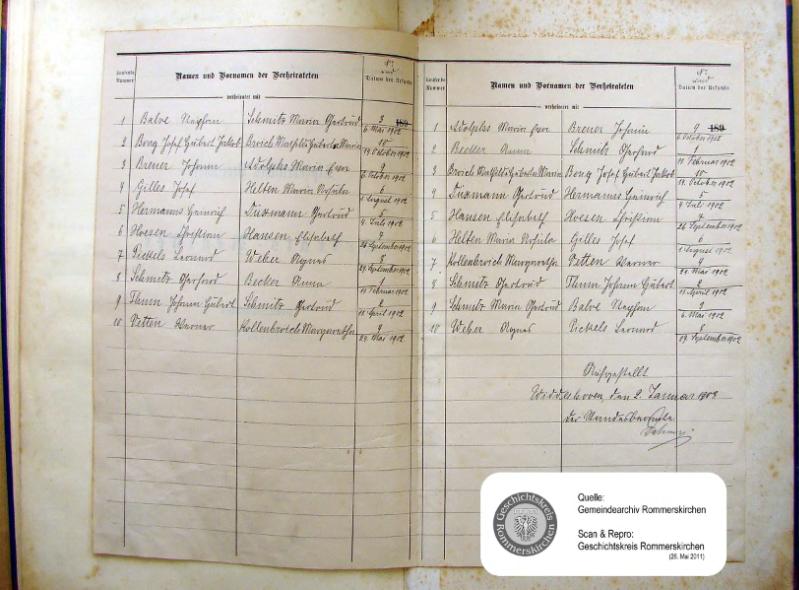 Laufende Nummer
Namen und Vornamen der Verheirateten
verheiratet mit
Nr. und Datum der Urkunde
189
1 Balve Schmitz Maria Gertrud 3 6 Mai 1902
2 Bong Josef Hubert Jakob Broich Mathilde Huberta Maria 10 14 October 1902
3 Brener Johann Adolphs Maria Eva 9 6 October 1902
4 Gilles Josef Helten Maria Ursula 6 1 August 1902
5 Hermanns Heinrich Düxmann Gertrud 5 4 Juli 1902
6 Hoesen Christian Hansen Elisabeth 7 26 September 1902
7 Pickels Leonard Weber Agnes 8 29 September 1902
8 Schmitz Gerhard Becker Anna 1 11 Februar 1902
9 Thum Johann Hubert Schmitz Gertrud 2 11 April 1902
10 Vetten Werner Hollenbroich Margaretha 4 21 Mai 1902
Laufende Nummer
Namen und Vornamen der Verheirateten
verheiratet mit
Nr. und Datum der Urkunde
189
1 Adolphs Maria Eva Brener Johann 9 6 October 1902
2 Becker Anna Schmitz Gerhard 1 11 Februar 1902
3 Broich Mathilde Huberta Maria Bong Josef Hubert Jakob 10 14 October 1902
4 Düxmann Gertrud Hermanns Heinrich 5 4 Juli 1902
5 Hansen Elisabeth Hoesen Christian 7 26 September 1902
6 Helten Maria Ursula Gilles Josef 6 1 August 1902
7 Hollenbroich Margaretha Vetten Werner 4 21 Mai 1902
8 Schmitz Gertrud Thum Johann Hubert 2 11 April 1902
9 Schmitz Maria Gertrud Balve 3 6 Mai 1902
10 Weber Agnes Pickels Leonard 8 29 September 1902
den 2. Januar 1903
Der Standesbeamte
Geschichtskreis Rommerskirchen
Quelle:
Gemeindearchiv Rommerskirchen
Scan & Repro:
Geschichtskreis Rommerskirchen
(28. Mai 2011)